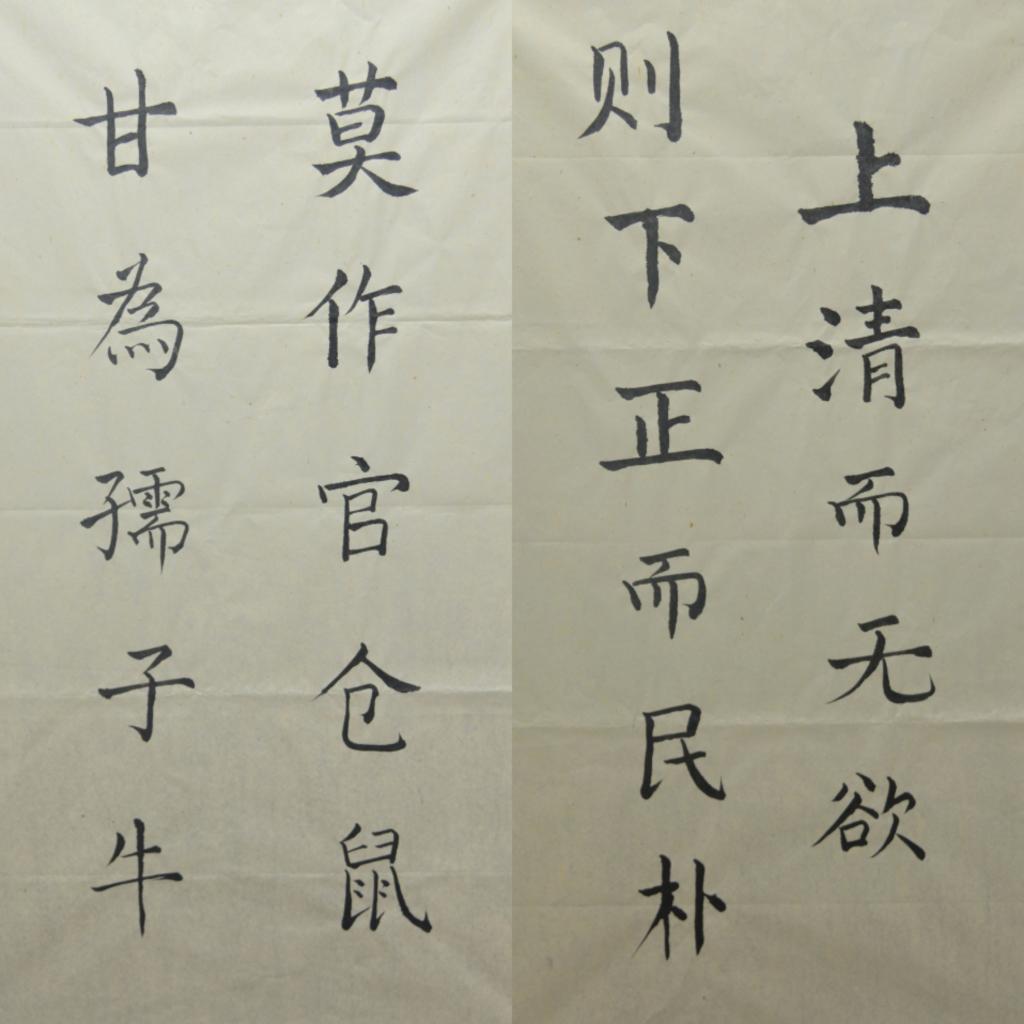 莫作官仓鼠
甘為孺子牛
上清而无欲
则下正而民朴